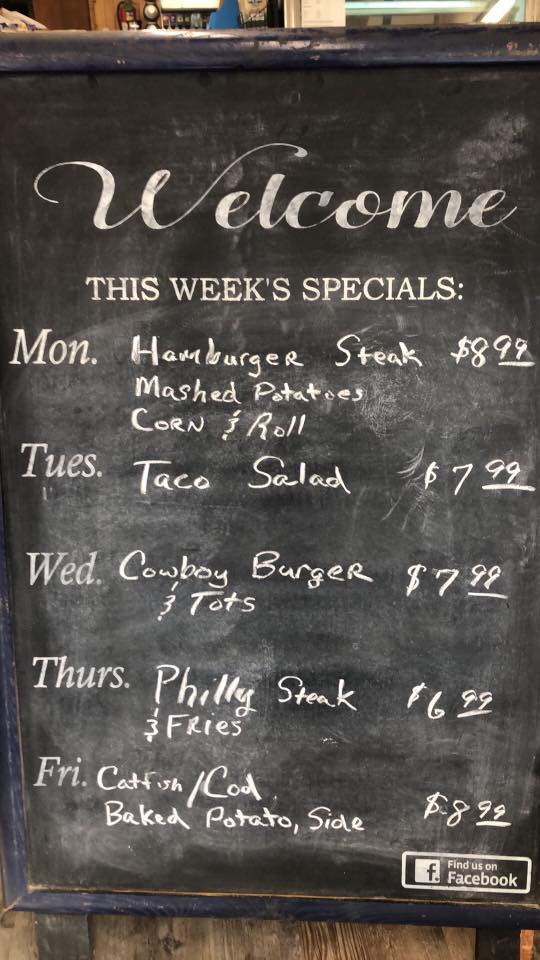 Welcome
THIS WEEK'S SPECIALS:
Mon. Hamburger Steak $8 99
Mashed Potatoes
Corn & Roll
Tues. Taco Salad $7 99
Wed. Cowboy Burger $7 99
& Tots
Thurs. Philly Steak $6 99
& Fries
Fri. Catfish/Cod
Baked Potato, Side $8 99
Find us on
Facebook